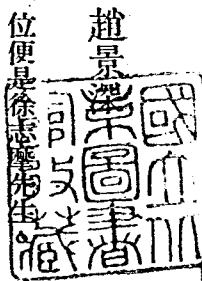 趙景深
位便是徐志摩先生。
國立北
圖書
收藏